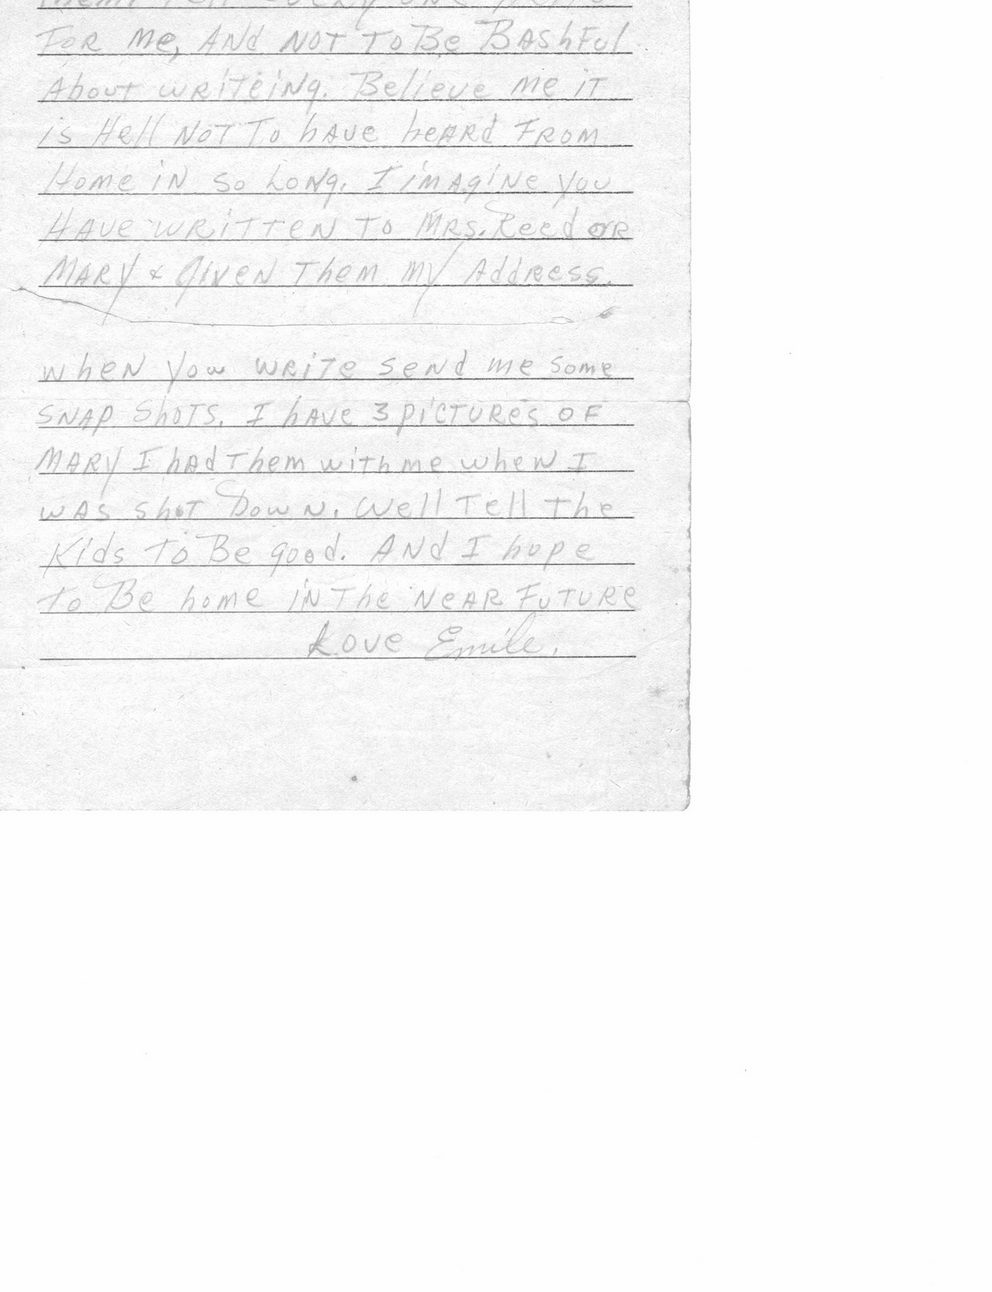 them. Tell every one
For me, And NOT To Be BAshFul
About wRiTeiNg. Believe me iT
is Hell NoT To hAve heARd FRom
Home iN so LoNg. I imAgiNe you
HAve wRiTTeN To MRs. Reed oR
MARy & giveN Them my AddRess.
wheN you wRiTe seNd me some
sNAp shoTs. I hAve 3 picTuRes oF
MARy I hAd Them with me wheN I
wAs shoT DowN. Well Tell The
Kids To Be good. ANd I hope
to Be home iN The NeAR FuTuRe
Love Emile.